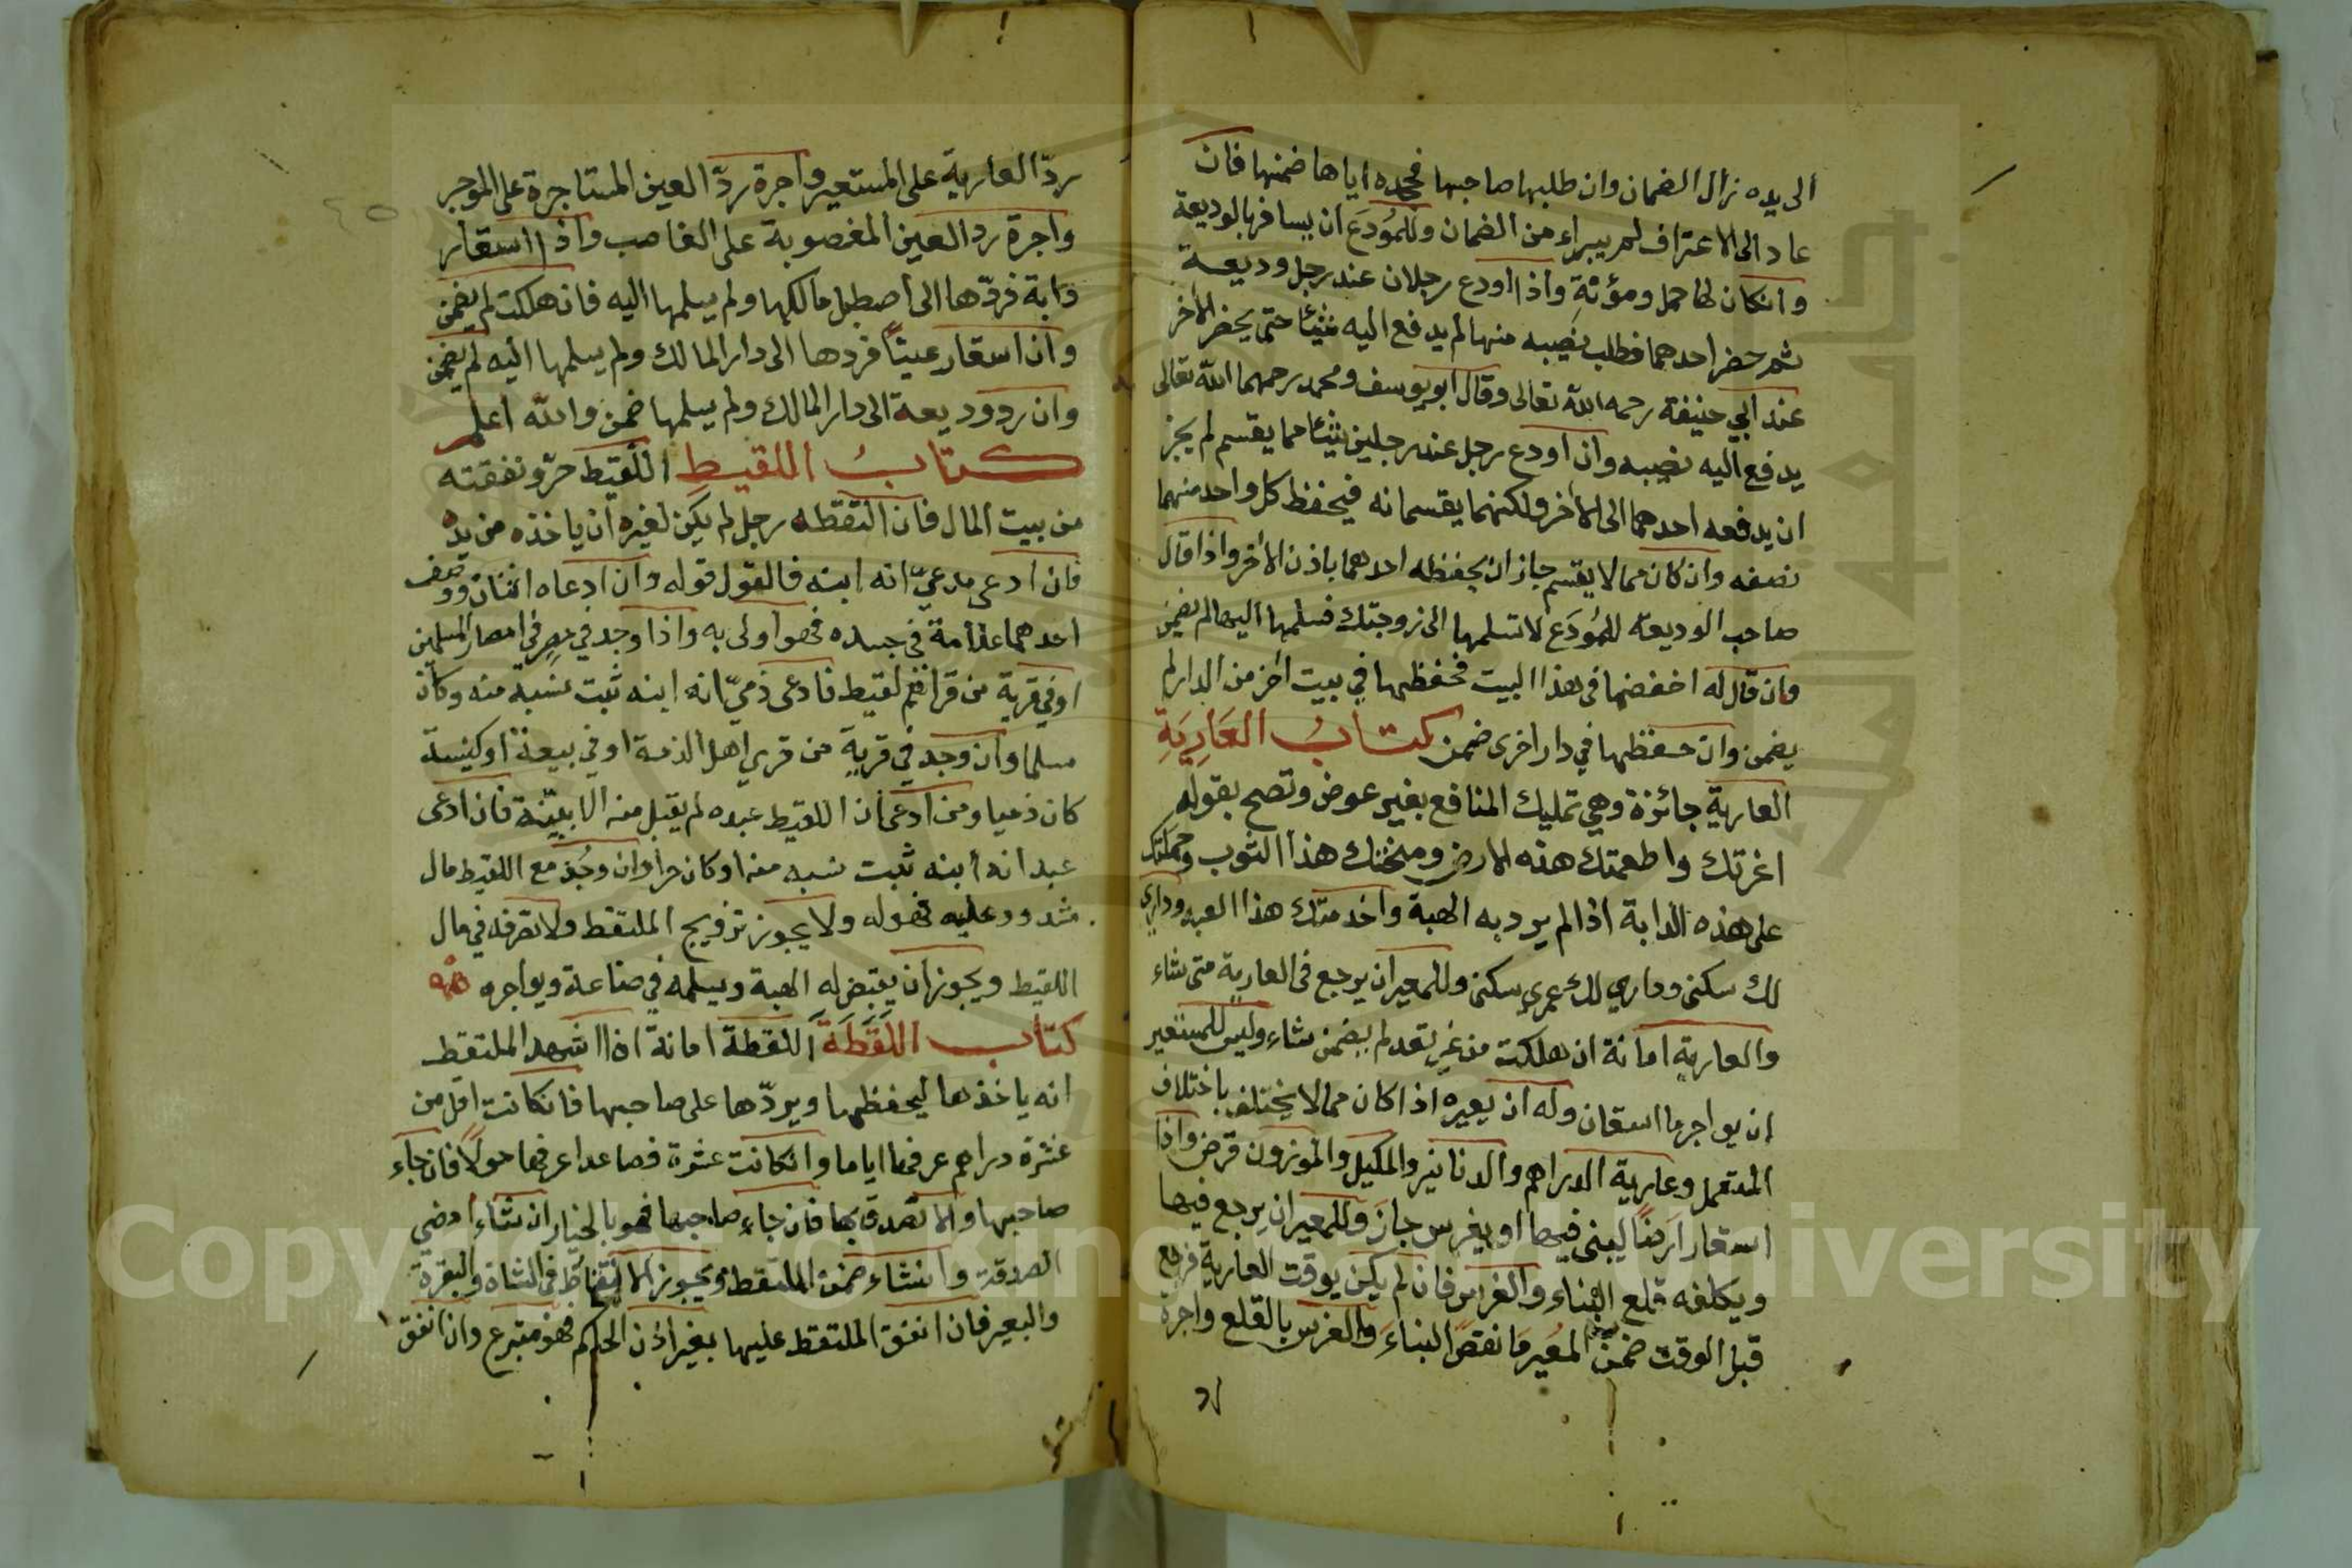 الى يده زال الضمان وان طلبها صاحبها فجحده اياها ضمنها فان
عاد الى الاعتراف لم يبراء من الضمان وللمُودَع ان يسافر بالوديعة
وانكان لها حمل ومؤنةٍ واذا اودع رجلان عند رجل وديعة
ثم حضر احدهما فطلب نصيبه منها لم يدفع اليه شيئا حتى يحضر الاخر
عند ابي حنيفة رحمه الله تعالى وقال ابو يوسف ومحمد رحمهما الله تعالى
يدفع اليه نصيبه وان اودع رجل عند رجلين شيئا مما يقسم لم يجز
ان يدفعه احدهما الى الاخر ولكنهما يقسمانه فيحفظ كل واحد منهما
نصفه وان كان مما لا يقسم جاز ان يحفظه احدهما باذن الاخر واذا قال
صاحب الوديعة للمُودَع لا تسلمها الى زوجتك فسلمها اليها لم يضمن
وان قال له احفضها فى هذا البيت فحفظها في بيت اخر من الدار لم
يضمن وان حفظها في دار اخرى ضمن كتابُ العَارِيَةِ
العارية جائزة وهي تمليك المنافع بغير عوض وتصح بقوله
اعرتك واطعمتك هذه الارض ومنحتك هذا الثوب وحملتك
على هذه الدابة اذا لم يرد به الهبة واخدمتك هذا العبد وداري
لك سكنى وداري لك عمري سكنى وللمعير ان يرجع فى العارية متى شاء
والعارية امانة ان هلكت من غير تعد لم يضمن شاء وليس للمستعير
ان يواجر ما استعان وله ان يعيره اذا كان مما لا يختلف باختلاف
المتعمل وعارية الدراهم والدنانير والمكيل والموزون قرض واذا
استعار ارضًا ليبنى فيها او يغرس جاز وللمعير ان يرجع فيها
ويكلفه قلع البناء والغرس فان لم يكن يوقت العارية فرجع
قبل الوقت ضمن المعير ما نقص البناء والغرس بالقلع واجرة
ردّ العارية على المستعير واجرة ردّ العين المستاجرة على الموجر
واجرة رد العين المغصوبة على الغاصب واذا استعار
دابة فردّها الى اصطبل مالكها ولم يسلمها اليه فان هلكت لم يضمن
وان استعار عيناً فردها الى دار المالك ولم يسلمها اليه لم يضمن
وان رد وديعة الى دار المالك ولم يسلمها ضمن والله اعلم
كتابُ اللقيطِ اللقيط حرّ ونفقته
من بيت المال فان التقطه رجل لم يكن لغيره ان ياخذه من يده
فان ادعى مدعيّ انه ابنه فالقول قوله وان ادعاه اثنان ووصف
احدهما علامة في جسده فهو اولى به واذا وجد في مصر في امصار المسلمين
او في قرية من قراهم لقيط فادعى ذميّ انه ابنه ثبت نسبه منه وكان
مسلما وان وجد في قرية من قري اهل الذمة او في بيعة او كنيسة
كان ذميا ومن ادعى ان اللقيط عبده لم يقبل منه الا ببيّنة فان ادعى
عبد انه ابنه ثبت نسبه منه وكان حرا وان وجُد مع اللقيط مال
مشدود عليه فهو له ولا يجوز تزويج الملتقط ولا تصرفه في مال
اللقيط ويجوز ان يقبض له الهبة ويسلمه في صناعة ويواجره
كتاب اللُّقَطَةَ اللقطة امانة اذا اشهد الملتقط
انه ياخذها ليحفظها ويردّها على صاحبها فانكانت اقل من
عشرة دراهم عرفها اياما وانكانت عشرة فصاعدا عرفها حولًا فان جاء
صاحبها والا تصدق بها فان جاء صاحبها فهو بالخيار ان شاء امضي
الصدقة وانشاء ضمن الملتقط ويجوز الالتقاط في الشاة والبقرة
والبعير فان انفق الملتقط عليها بغير اذن الحاكم فهو متبرع وان انفق
Copyright © King Saud University